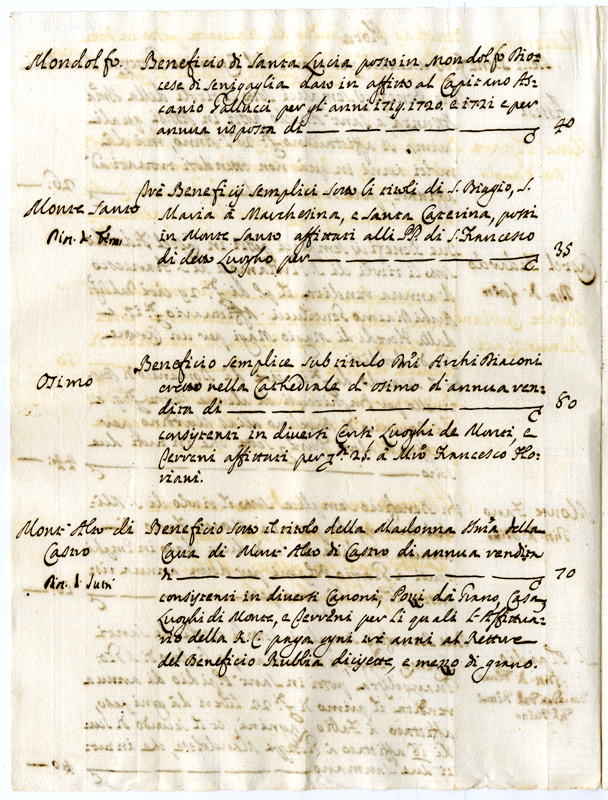 Mondolfo. Beneficio di Santa Lucia posto in Mondolfo Dio:
cese di Senigaglia dato in affitto al Capitano As:
canio Fallucci per gl'anni 1719. 1720. e 1721 e per
annua risposta di 40
Monte Santo Trè Beneficij Semplici Sotto li titoli di S. Biaggio, S.
Maria à Marchesina, e Santa Caterina, posti
in Monte Santo affittati alli PP. di S. Francesco
di detto Luogho per 35
Osimo Beneficio Semplice sub titulo Archi Diaconi
eretto nella Cathedrale d'Osimo d'annua ren:
dita di 80
consistenti in diversi Censi Luoghi de Monti, e
Terreni affittati per 25. à Francesco Flo:
riani.
Mont' Alto di Castro Beneficio Sotto il titolo della Madonna della
Cava di Mont' Alto di Castro di annua rendita
di 70
consistenti in diversi Canoni, da Grano, Casa
Luoghi di Monte, e Terreni per li quali l'Affittua:
rio della R. C. paga ogni trè anni al Rettore
del Beneficio Rubbia dicisette, e mezzo di grano.